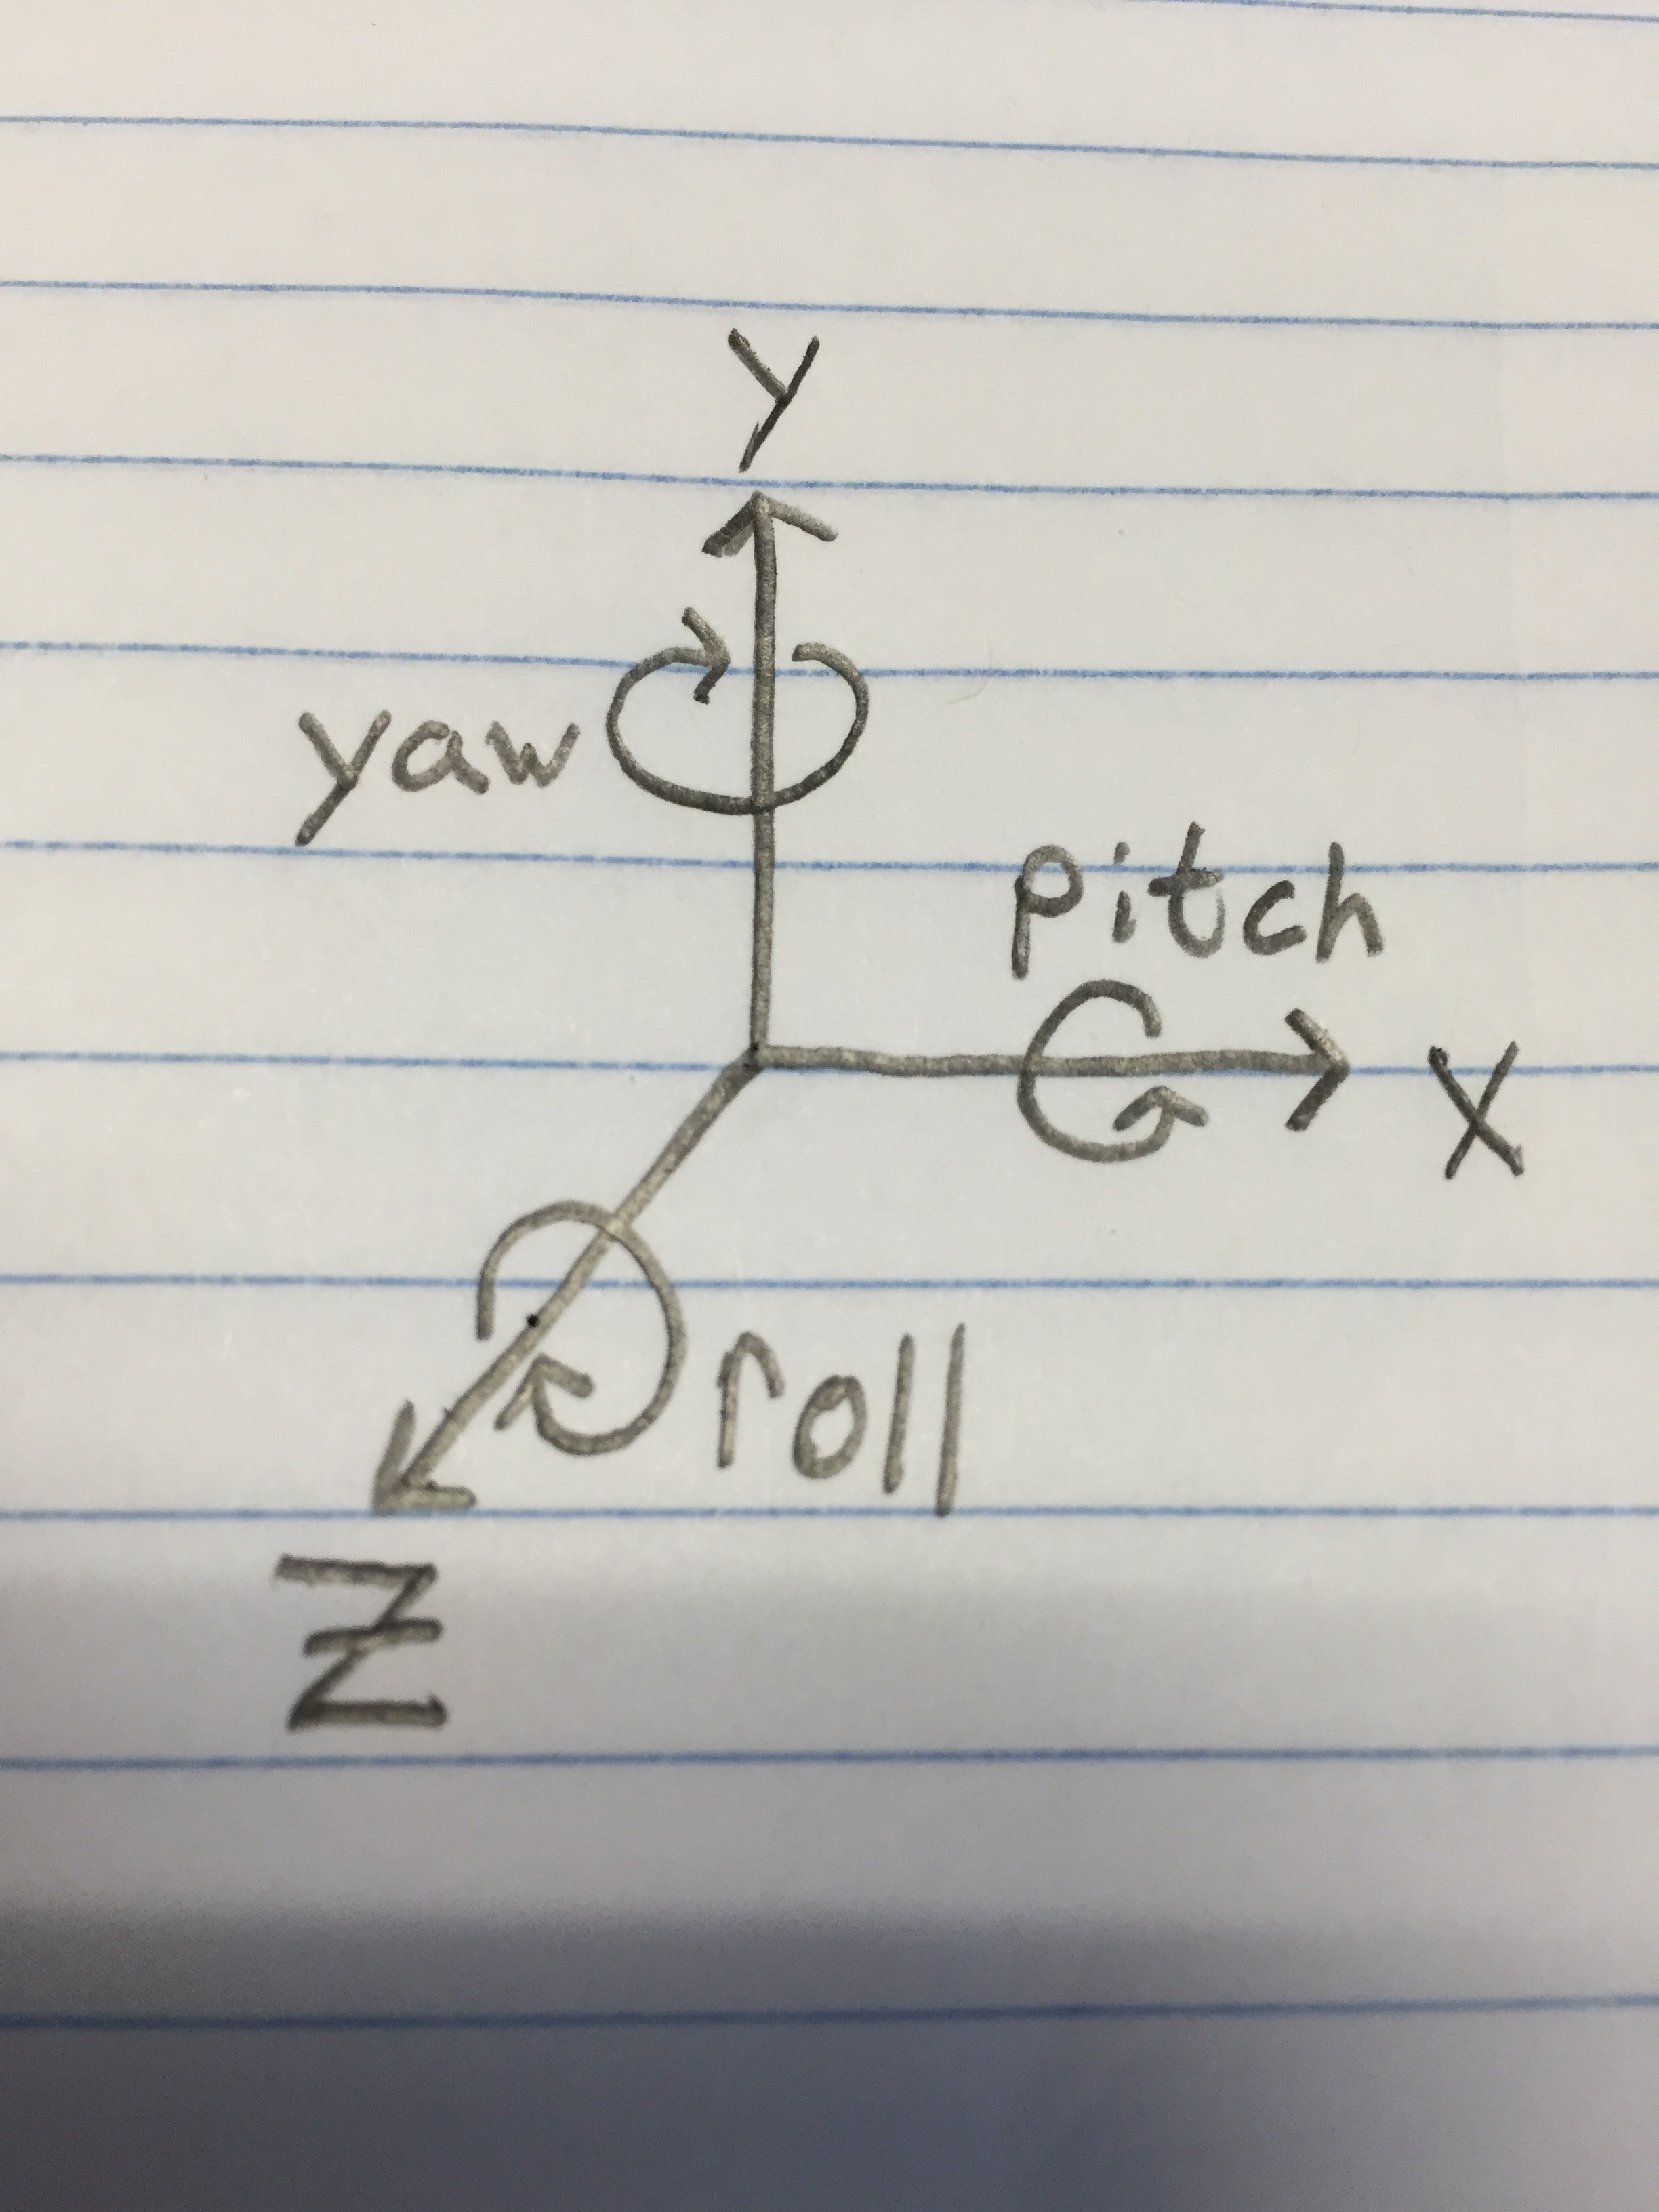 Y
yaw
pitch
X
roll
Z